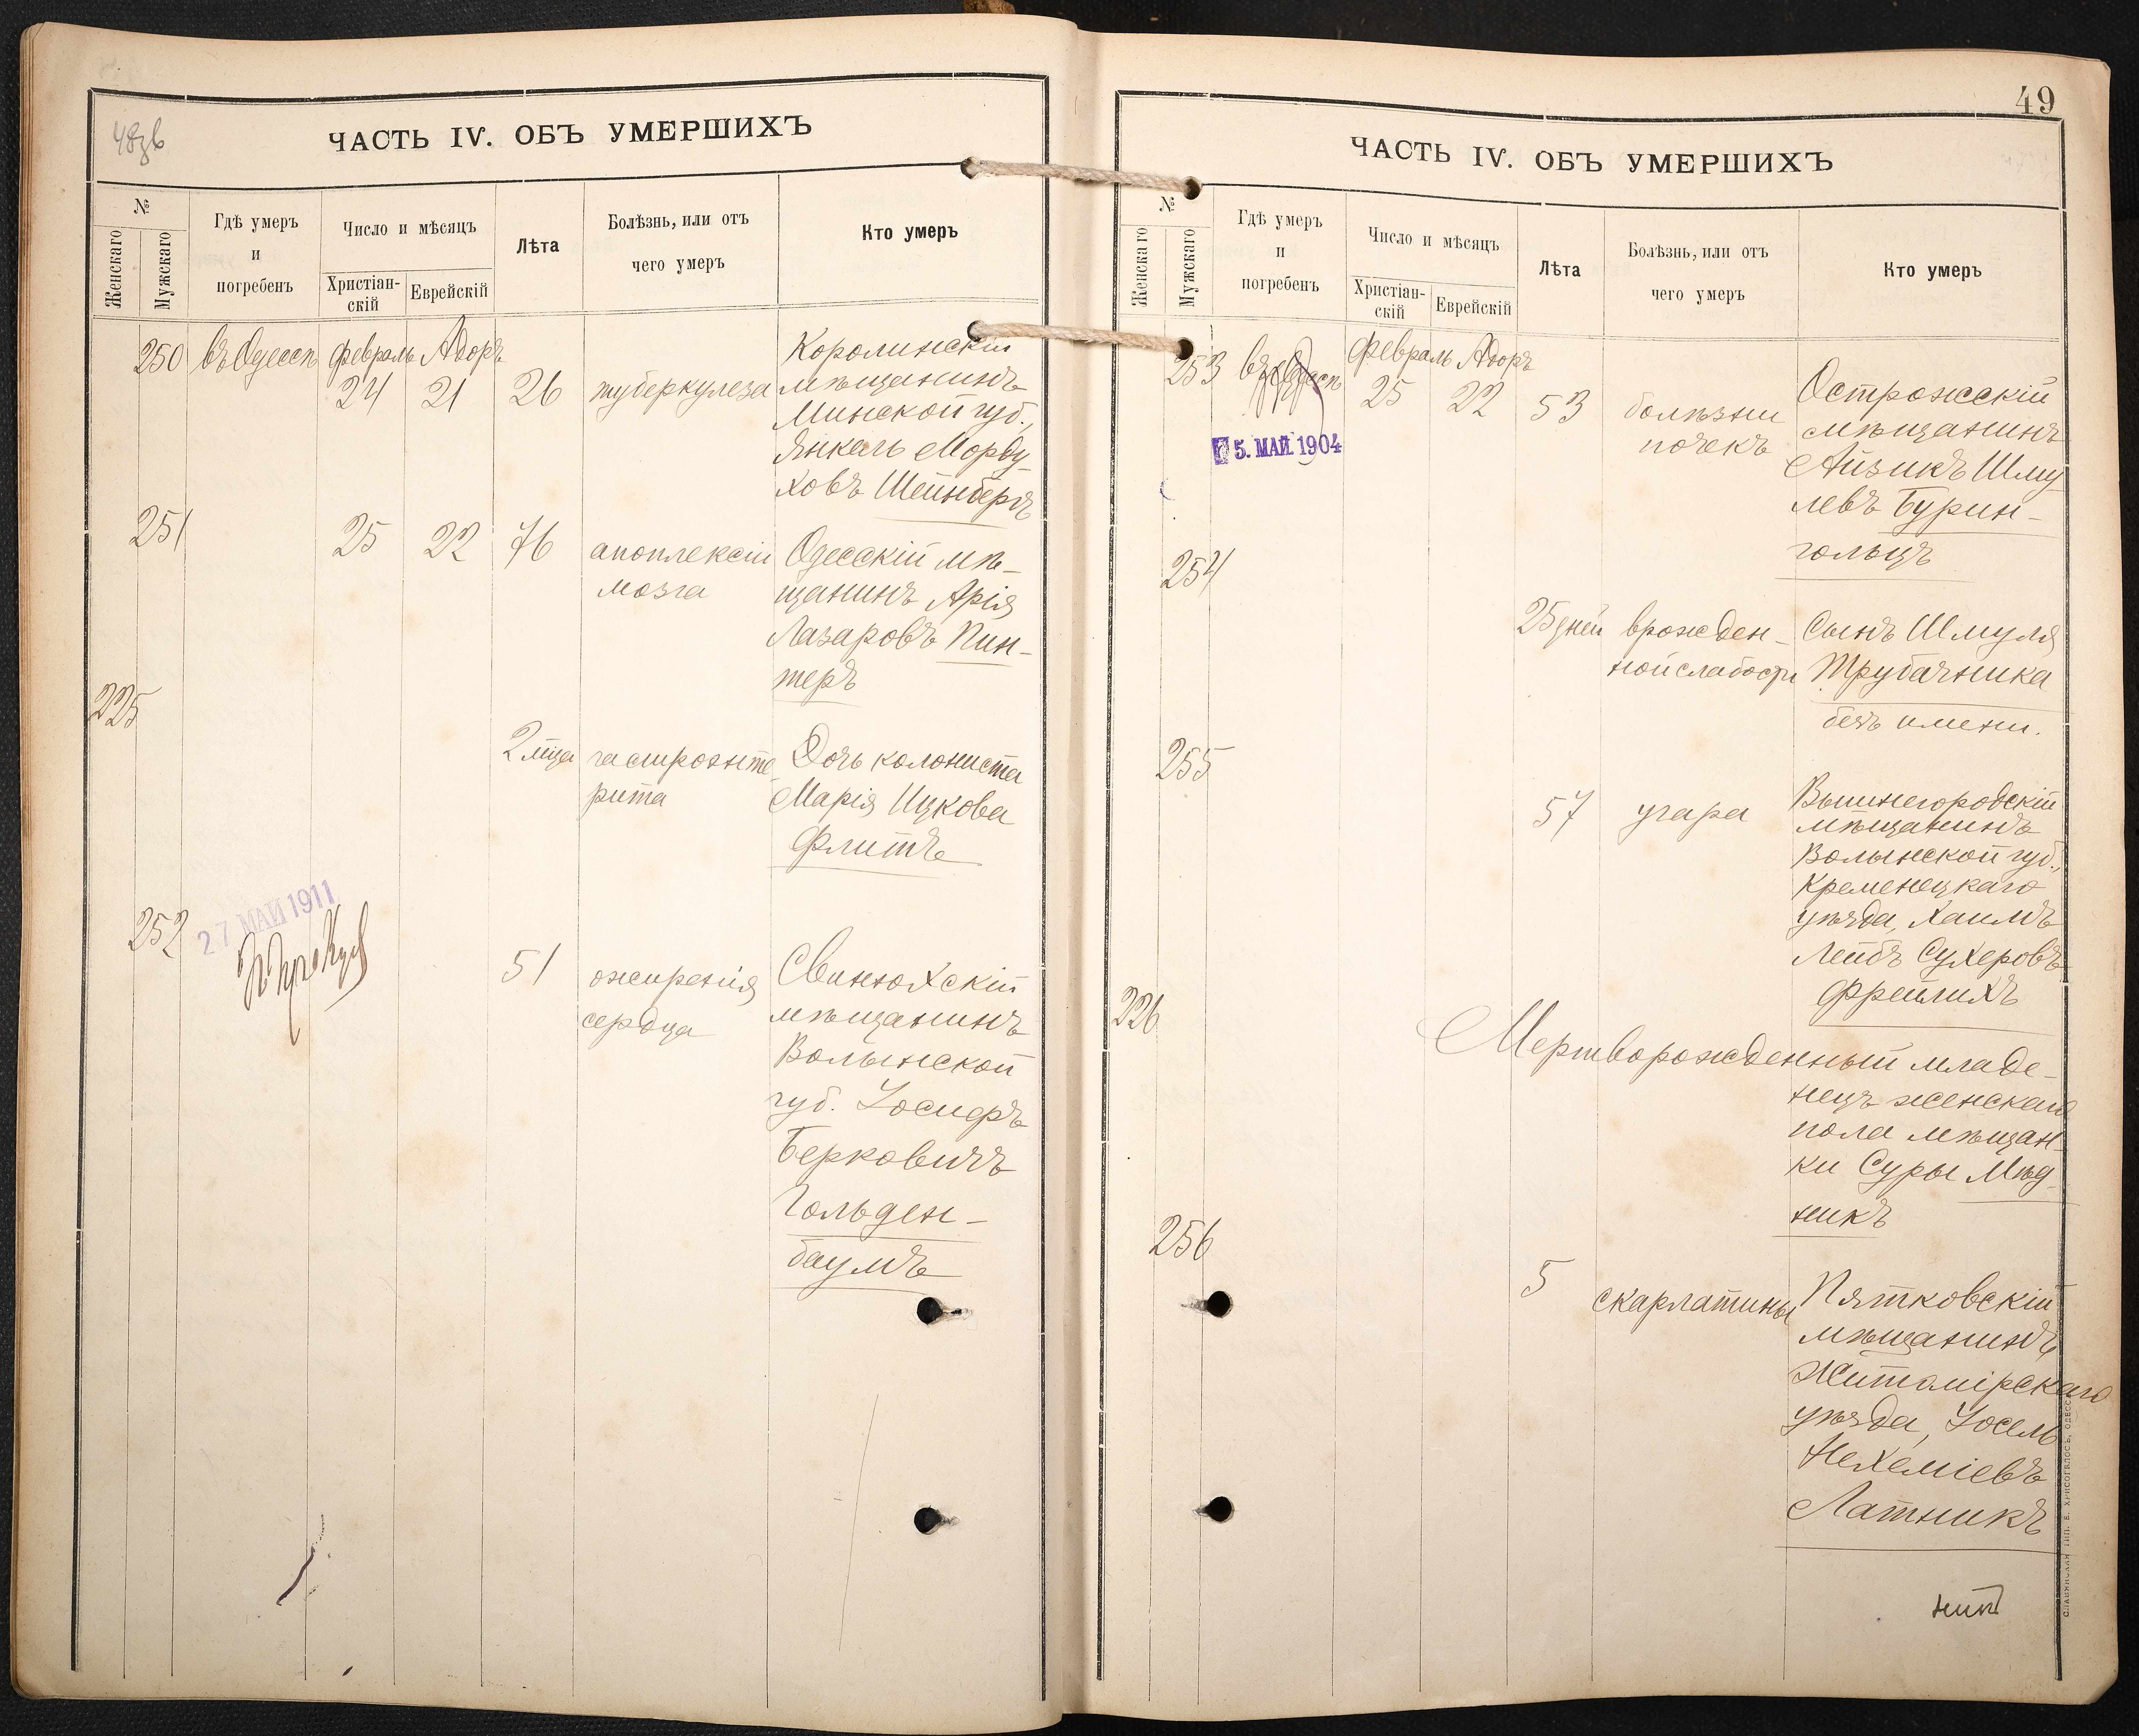 48зв
ЧАСТЬ IV. ОБЪ УМЕРШИХЪ
№
Женскаго
Мужскаго
Гдѣ умеръ
и
погребенъ
Число и мѣсяцъ
Христіан-
скій
Еврейскій
Лѣта
Болѣзнь, или отъ
чего умеръ
Кто умеръ
250 въ Одессѣ февраль Адаръ
24 21 26 туберкулеза
Королинскій
мѣщанинъ
Минской губ.,
Янкель Морду
ховъ Шейнбергъ
251 25 22 76 апоплексіи
мозга
Одесскій мѣ-
щанинъ Арія
Лазаровъ Пин-
теръ
225
2 м̃ца гастроэнте
рита
Дочь колониста
Марія Ицкова
Флитъ
252
27 МАЙ 1911
51 ожирѣнія
сердца
Свинюхскій
мѣщанинъ
Волынской
губ. Іосифъ
Берковичъ
Гольден-
баумъ
49
ЧАСТЬ IV. ОБЪ УМЕРШИХЪ
№
Женскаго
Мужскаго
Гдѣ умеръ
и
погребенъ
Число и мѣсяцъ
Христіан-
скій
Еврейскій
Лѣта
Болѣзнь, или отъ
чего умеръ
Кто умеръ
253 въ Одессѣ февраль Адаръ
25 22 53 болѣзни
почекъ
5. МАЙ 1904
Острожскій
мѣщанинъ
Айзикъ Шму
левъ Бурин-
гольцъ
254
25 дней врожден-
ной слабости
Сынъ Шмуля
Трубачника
безъ имени.
255
57 угара
Вышнегородскій
мѣщанинъ
Волынской губ.,
Кременецкаго
уѣзда, Хаимъ
Лейбъ Сухеровъ
Фрейлихъ
226
Мертворожденный младе-
нецъ женскаго
пола мѣщан-
ки Суры Мѣд
никъ
256
5 скарлатины
Пятковскій
мѣщанинъ
Житомірскаго
уѣзда, Іосель
Нехеміевъ
Латникъ
СЛАВЯНСКАЯ ТИП. Е. ХРИСОГЕЛОСЪ, ОДЕССА